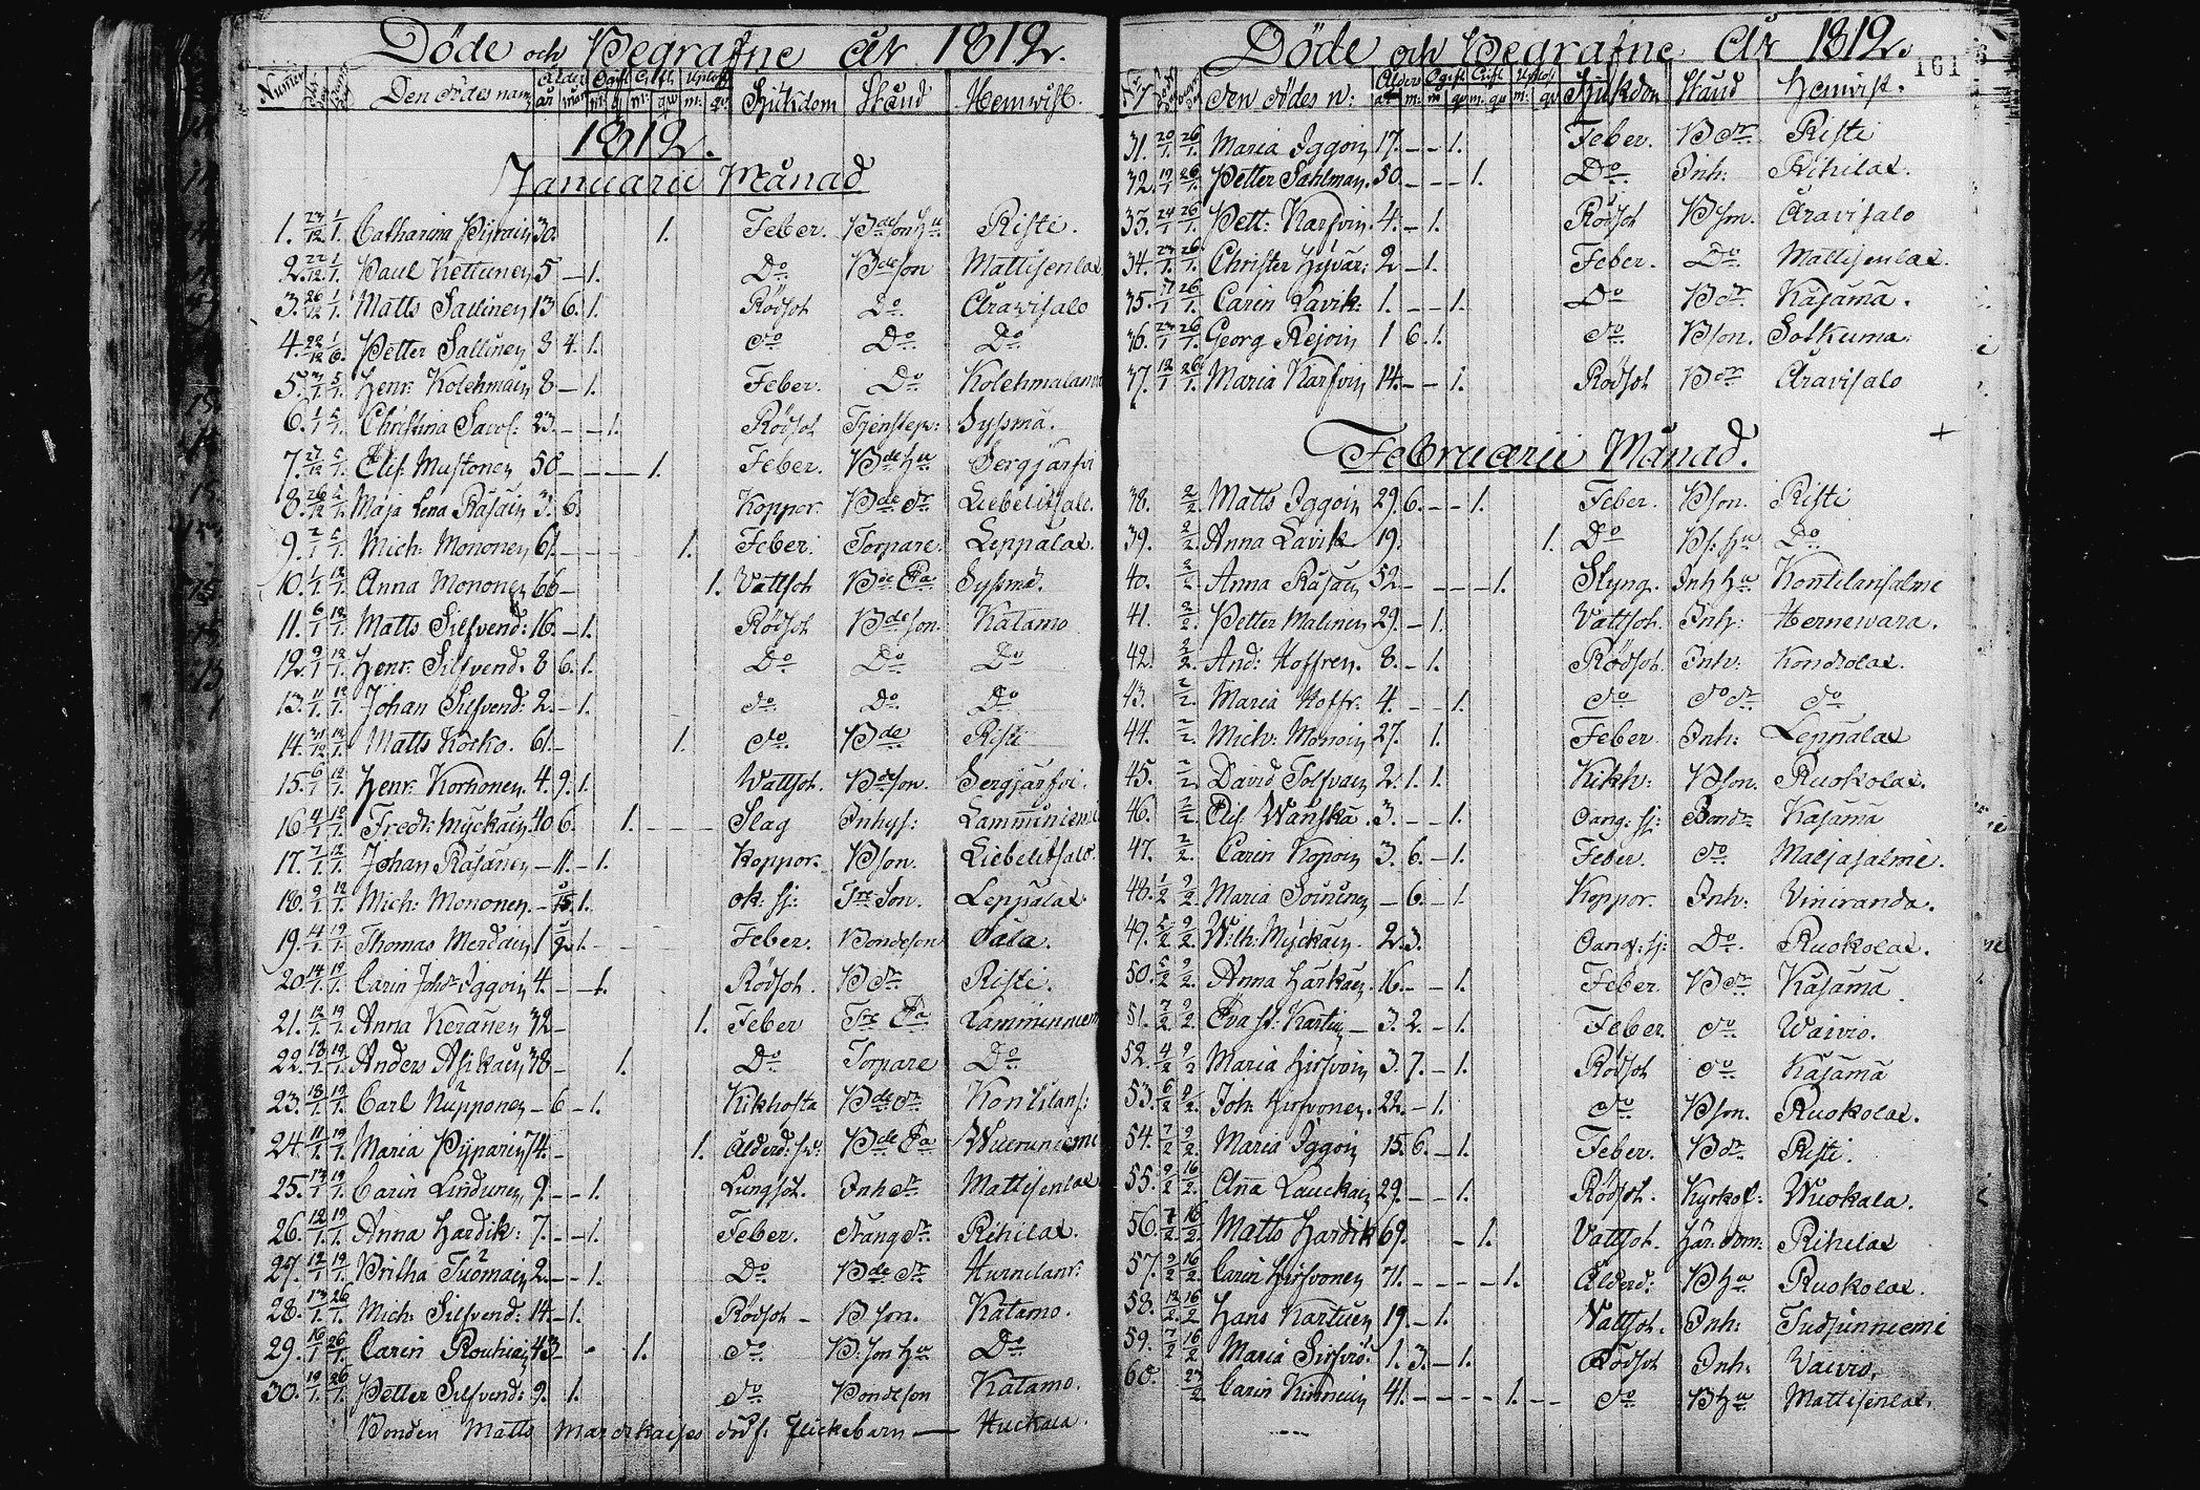 Döde och Begrafne år 1812.
Numer Den dödes namn Ålder Ogift Gift Sjukdom Stånd Hemvist.
år mån m: q m: qv m: qv
1812.
Januarii Månad
1. 27/12 1/1. Catharina Pijrain 30. 1. Feber. Bdeson Hu Risti.
2. 22/12. 1/1. Paul Kettunen 5 – 1. Do Bdeson Mattisenlax
3. 26/12 1/1. Matts Sallinen 13 6. 1. Rödsot Do. Aravisalo
4. 22/12 1/6. Petter Sallinen 3 4. 1. do Do Do
5. 5/1. Henr: Kolehmain 8 – 1. Feber. Do Kolehmalam
6. 1/1 5/1. Christina Savol: 23. – – 1. Rödsot Tjenstep: Syssmä.
7. 27/12 5/1. Elis: Mustonen 50 – – – 1. Feber. Bde Hu Sergjärfvi
8. 26/12 5/1. Maja Lena Räsäin 3. 6. Koppor. Bde dr Liebelitsalo.
9. 2/1 5/1. Mich: Mononen 61. – – – 1. Feber. Torpare. Leppälax.
10. 1/1. 12/1. Anna Mononen 66 – 1. Vattsot Bde Ea Syssmä.
11. 6/1 12/1. Matts Silfvend: 16. – 1. Rödsot Bdeson. Katamo
12. 9/1 12/1. Henr. Silfvend. 8 6. 1. Do Do Do
13. 11/1. 12/1. Johan Silfvend: 2. – 1. do Do Do
14. 31/12 12/1. Matts Kocko. 61. – 1. do Bde Risti
15. 6/1. 12/1. Henr: Korhonen. 4. 9. 1. Wattsot. Bdeson. Sergjärfvi.
16. 4/1 12/1. Fredr: Myckäin. 40 6. 1. – – – Slag Inhys: Lamminiemi
17. 7/1. 12/1. Johan Räsänen – 11. – 1. Koppor. Bson. Liebelitsalo.
18. 9/1. 12/1. Mich: Mononen. – 15. 1. ok: sj: Tre Son. Leppälax.
19. 4/1. 19/1. Thomas Merdain 1 2 1. – Feber. Bondeson Sala.
20. 14/1. 19/1. Carin Johdr Iggoin 4. – – 1. Rödsot. B dr Risti.
21. 12/1. 19/1. Anna Keränen 32 – 1. Feber Tre Ea Lamminniem
22. 13/1. 19/1. Anders Asikain 38 – 1. Do Torpare Do
23. 18/1. 19/1. Carl Nupponen – 6 – 1. Kikhosta Bde dr Kontilans:
24. 11/1. 19/1. Maria Pijparin 74. – 1. Ålderd: sv: Bde Ea Wuoruniemi
25. 17/1 19/1. Carin Lindunen 9. – – 1. Lungsot. Inh dr Mattisenlax
26. 12/1. 19/1. Anna Hardik: 7. – – 1. Feber. dräng dr. Rihilax.
27. 12/1 19/1. Britha Tuomain 2. – – 1. Do Bde dr
28. 13/1. 26/1. Mich: Silfvend: 14. – 1. Rödsot – B son. Katamo.
29. 16/1 26/1. Carin Routiain 43 – 1. do B: son Hu Do
30. 19/1. 26/1. Petter Silfvend: 9. 1. do Bondeson Katamo.
Bonden Matts död f. flickebarn — Huckala.
Döde och Begrafne År 1812.
161
den dödes n: Ålder Ogift Gift Sjukdom Stånd Hemvist.
31. 20/1. 26/1. Maria Iggoin 17. – – 1. Feber. B dr Risti
32. 19/1 26/1. Petter Sahlman. 50. – – – 1. Do Inh: Rihilax.
33. 24/1 26/1 Pett: Karfvin. 4. – 1. Rödsot Bson. Aravisalo
34. 23/1. 26/1. Christer Hyvär: 2 – 1. Feber. Do Mattisenlax.
35. 26/1. Carin Lavik: 1. – – 1. Do B dr. Käsämä.
36. 23/1 26/1 Georg Rejoin 1 6. 1. do Bson. Sotkuma.
37. 12/1 26/1. Maria Karfvin 14. – – 1. Rödsot B dr Aravisalo
Februarii Månad.
38. 2/2. Matts Iggoin 29. 6. – – 1. Feber. Bson. Risti
39. 2/2. Anna Lavik 19. 1. Do Bs: Hu Do
40. 2/2. Anna Räsäin 52 – – – – 1. Styng. Inh Hu Kontilansalmi
41. 2/2. Petter Malinen 29. – 1. Vattsot. Inh: Hernewara.
42. 2/2. And: Hoffren. 8. – 1. Rödsot. Inh: Kondiolax.
43. 2/2. Maria Hoffr: 4. – – 1. do do dr do
44. 2/2. Mich: Monoin 27. 1. Feber Inh: Leppälax
45. 2/2 David Tolfvain 2. 1. 1. Kikh: Bson. Ruokolax.
46. 2/2. Elis: Wänskä. 3. – – 1. Oang: sj: Bondr. Käsämä
47. 2/2. Carin Kopoin 3. 6. – 1. Feber. do Maljasalmi.
48. 1/2 9/2 Maria Soininen – 6. – 1. Koppor. Inh: Viniranda.
49. 5/2. 9/2. Wilh: Myckäin. 2. 3. Oang: sj: Do. Ruokolax.
50. 5/2 9/2. Anna Härkäin. 16. – – 1. Feber. B dr Käsämä
51. 7/2. 9/2. Eva st: Karttu – 3. 2. – 1. Feber. do Waivio.
52. 4/2 9/2 Maria Hirfvoin 3. 7. – 1. Rödsot do Käsämä
53. 6/2 9/2. Joh: Hirfvonen. 22. – 1. do Bson. Ruokolax.
54. 7/2 9/2. Maria Iggoin 15. 6. – 1. Feber. B dr. Risti.
55. 9/2 16/2. Anna Lauckain 29. – – 1. Rödsot. Kyrkof: Wuokala.
56. 7/2 16/2. Matts Hardik 69. – 1. Vattsot. Rihilax
57. 9/2 16/2. Carin Hirfvonen 71. – – – – 1. Ålderd: B Hu Ruokolax.
58. 12/2. 16/2 Hans Kartuen 19. – 1. Vattsot. Inh:
59. 7/2 16/2 Maria Sirfvio: 1. 3. – 1. Rödsot Inh: Vaivio.
60. 23/2 Carin Kinnuin 41. – – – – 1. – – do B Hu Mattisenlax.